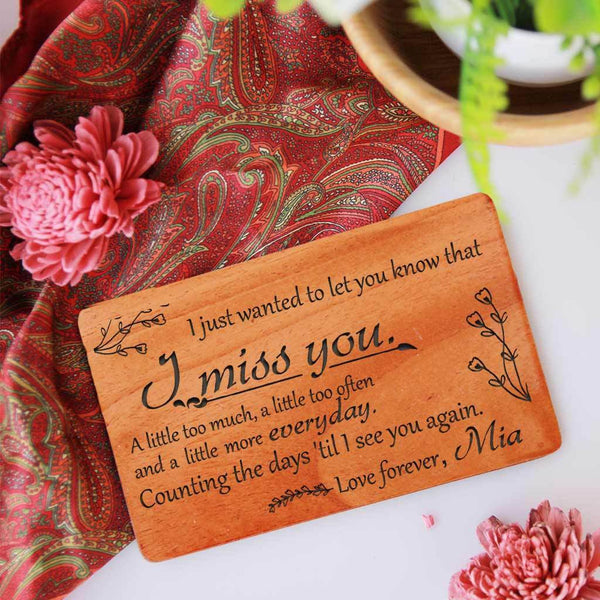 I just wanted to let you know that
I miss you.
A little too much, a little too often
and a little more everyday.
Counting the days 'til I see you again.
Love forever, Mia